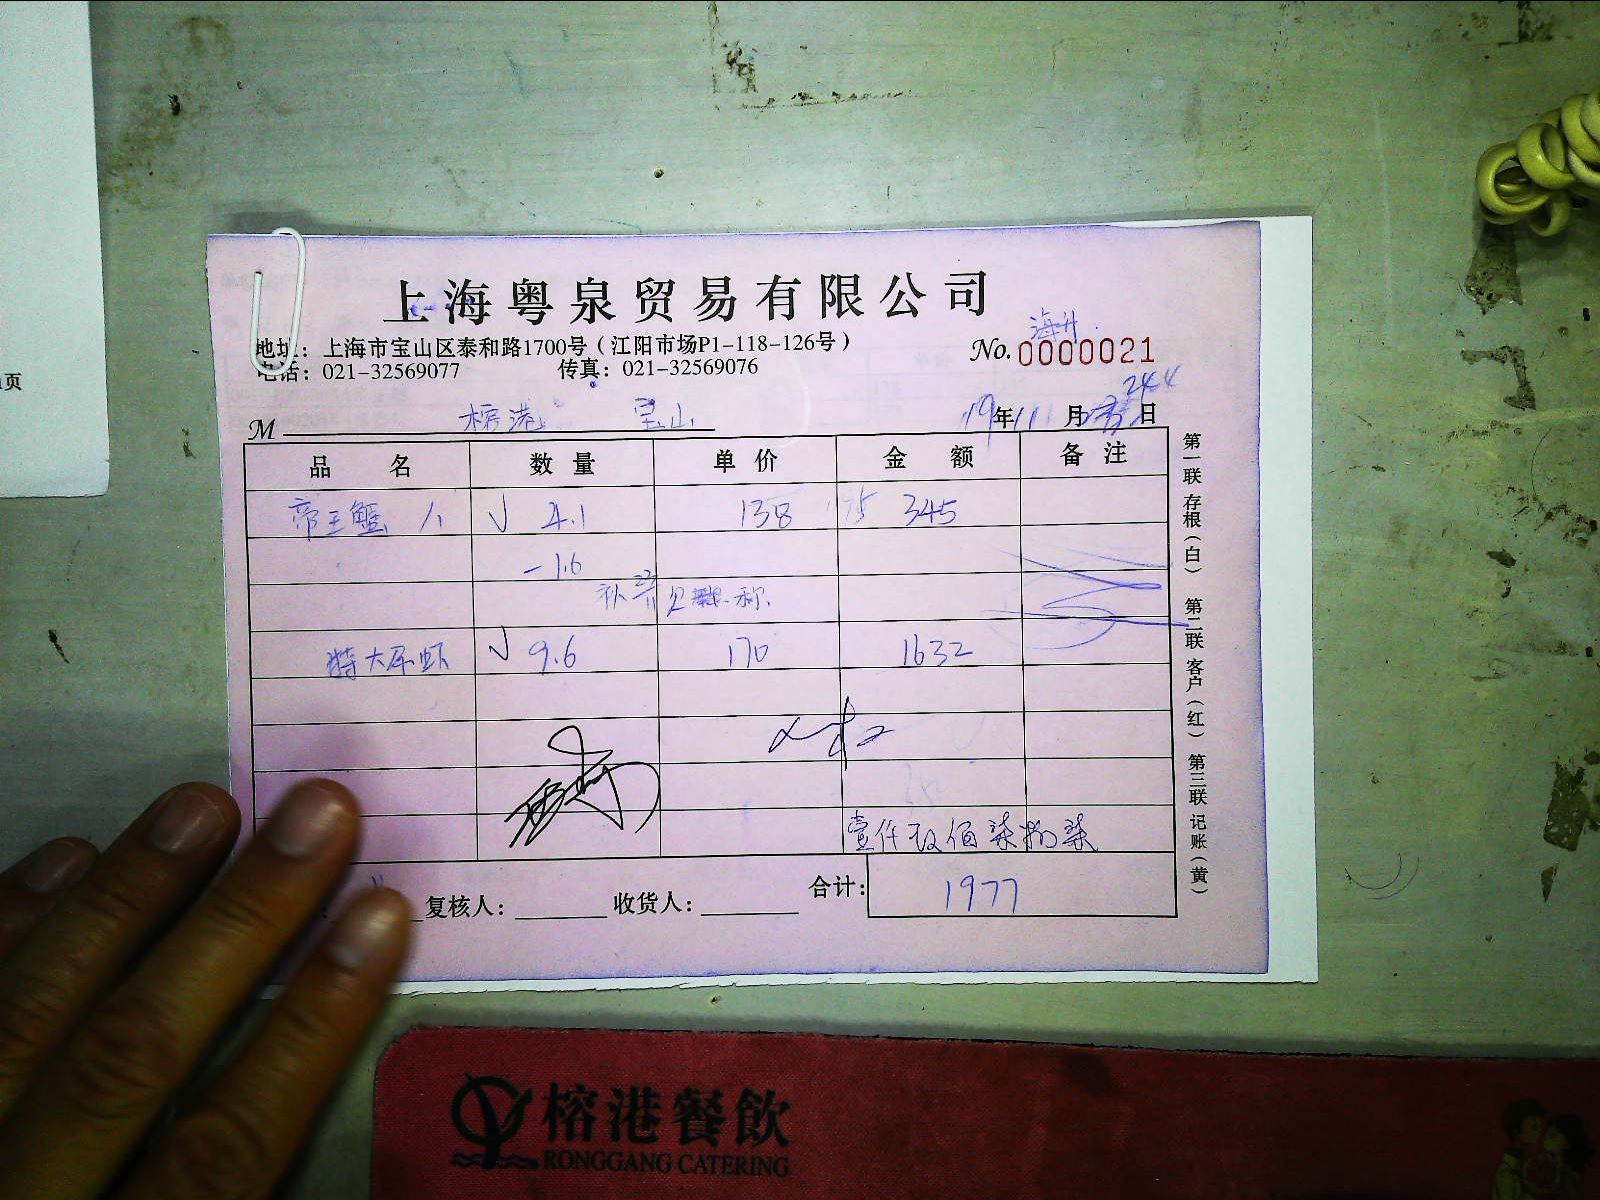 页
上海粤泉贸易有限公司
地址：上海市宝山区泰和路1700号（江阳市场P1-118-126号）
电话：021-32569077 传真：021-32569076
No. 0000021
244
M 榕港 宝山 19年11月 日
品名 数量 单价 金额 备注
帝王蟹 √ 4.1 138 345
-1.6
补 称
特大 虾 √ 9.6 170 1632
壹仟玖佰柒拾柒
复核人： 收货人： 合计： 1977
第一联 存根（白） 第二联 客户（红） 第三联 记账（黄）
榕港餐飲
RONGGANG CATERING